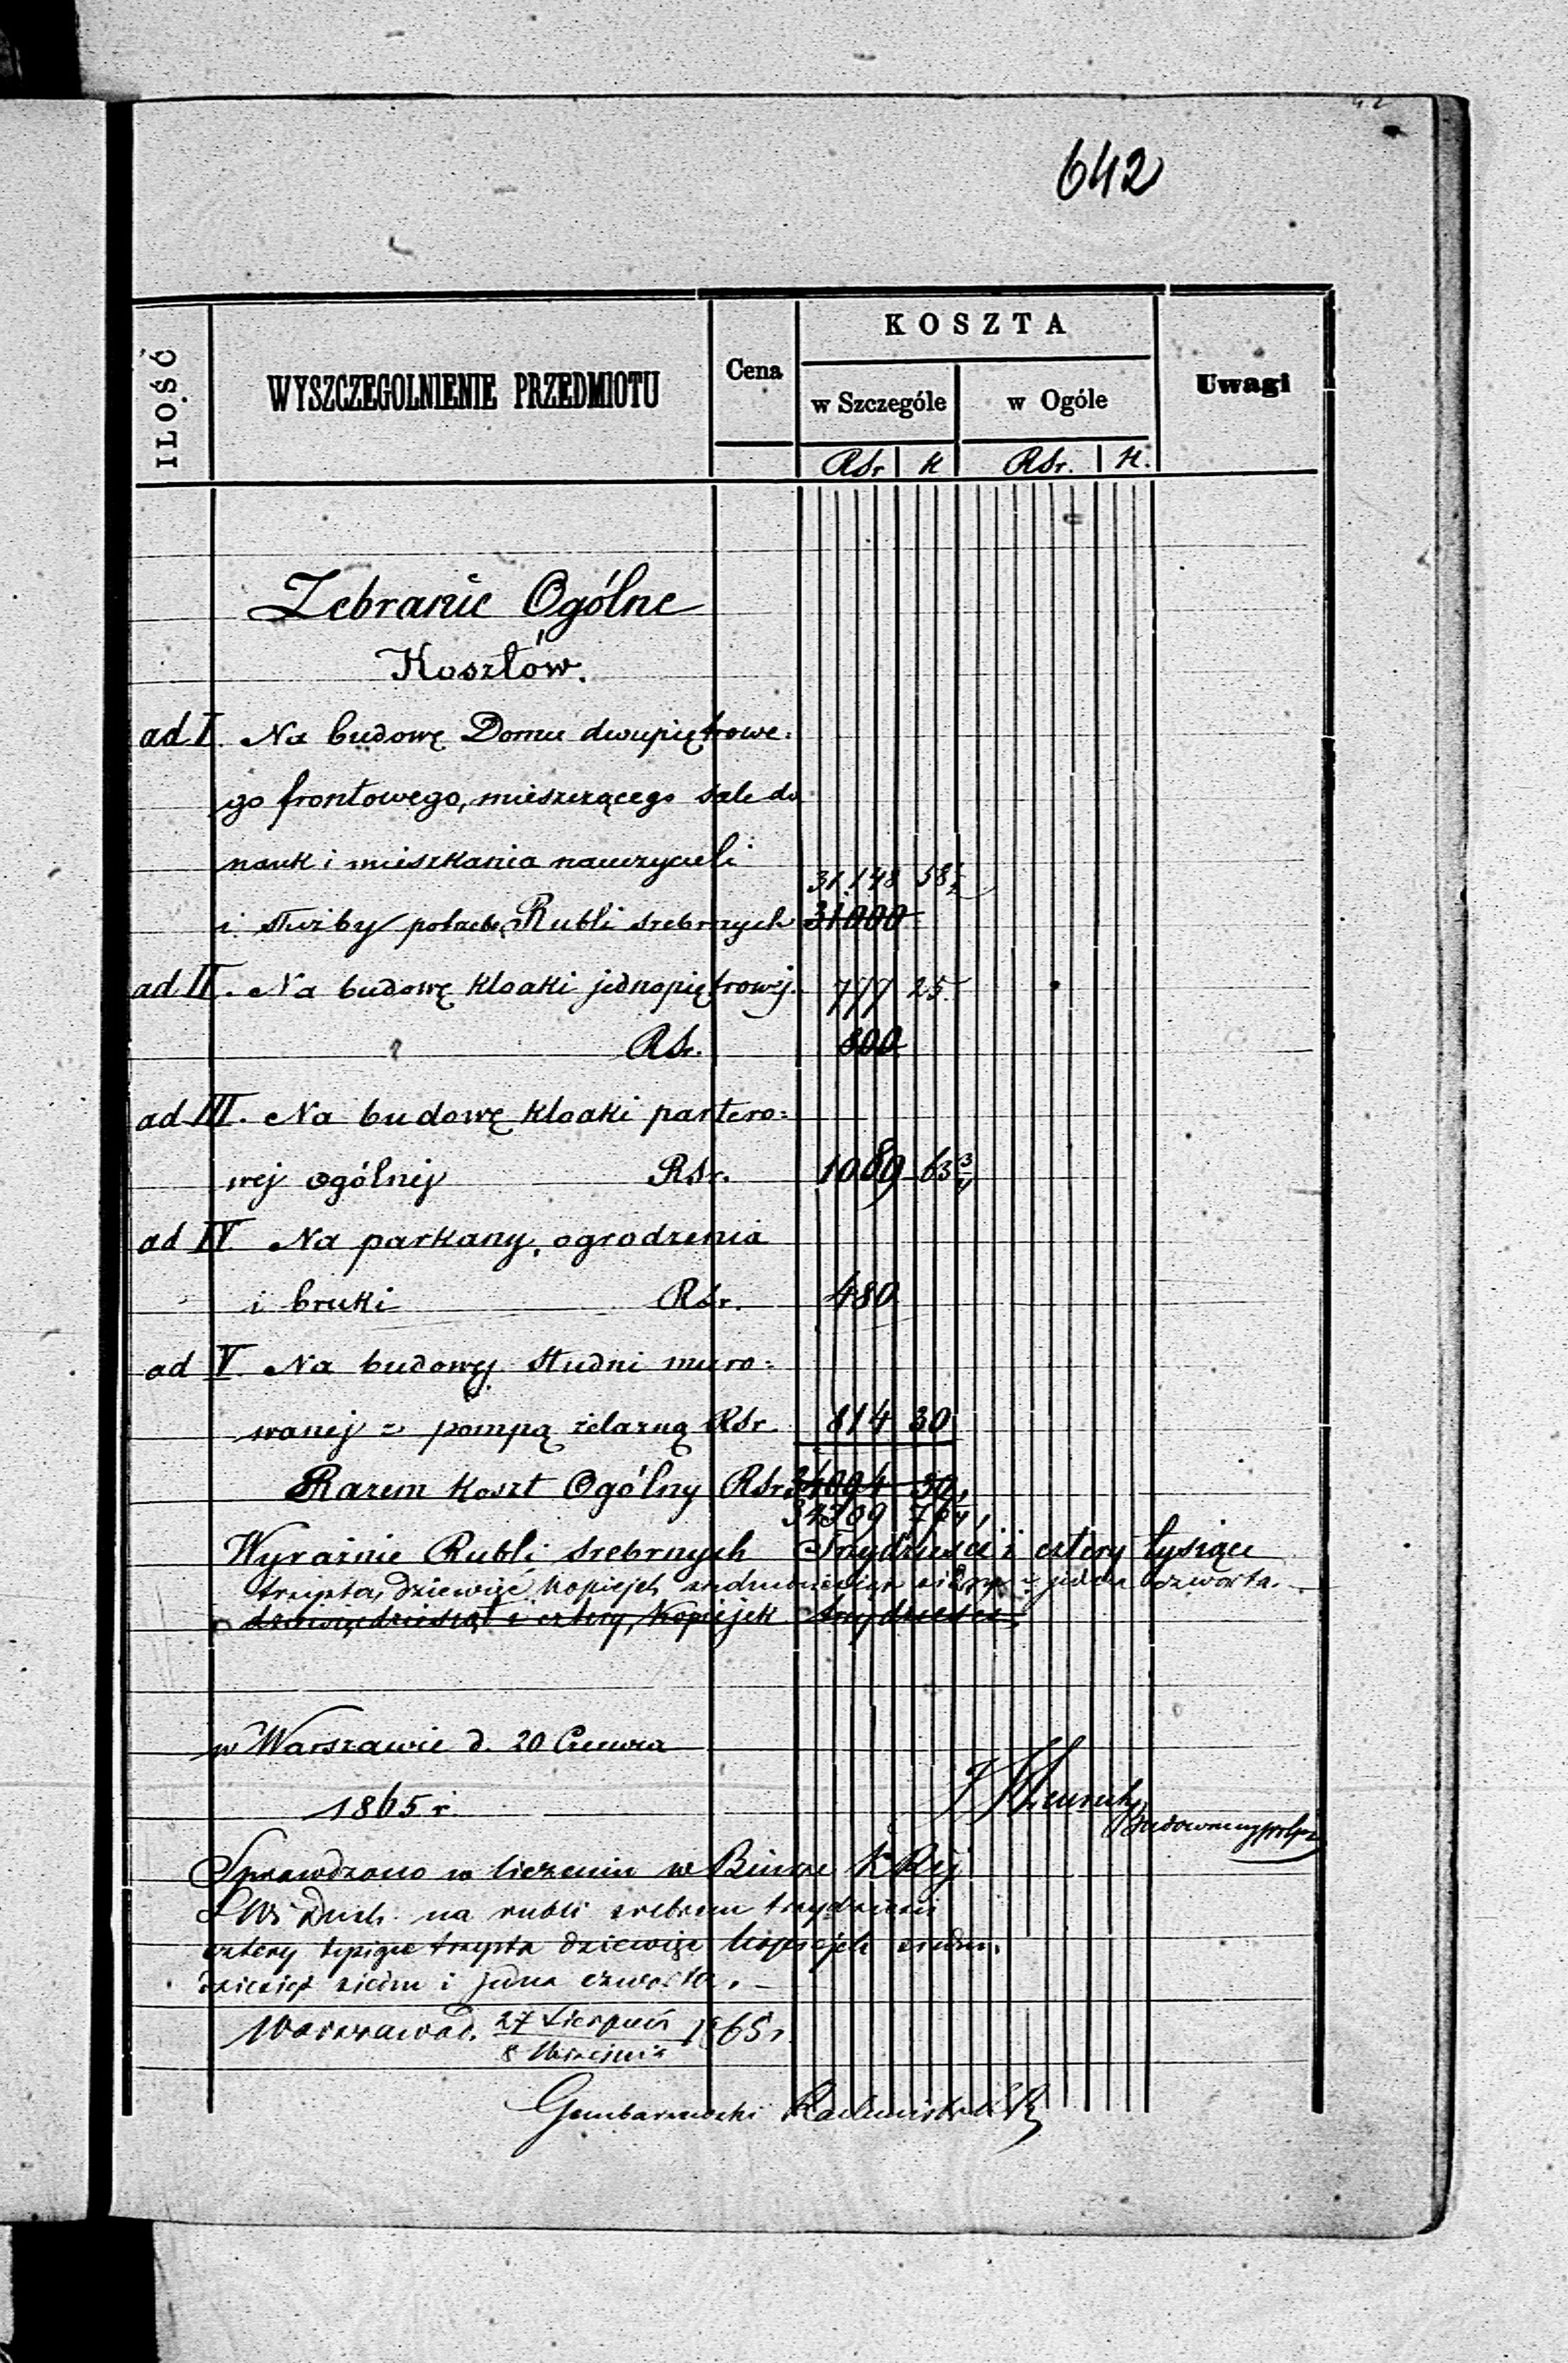 642
ILOŚĆ
WYSZCZEGOLNIENIE PRZEDMIOTU
Cena
KOSZTA
w Szczególe
w Ogóle
Uwagi
RSr K RSr. K.
Zebranie Ogólne
Kosztów.
ad I. Na budowę Domu dwupiętrowe-
go frontowego, mieszczącego sale do
nauk i mieszkania nauczycieli
31.148 58
i służby potrzeba Rubli srebrnych 31000
ad II. Na budowę kloaki jednopiętrowej. 777 25
RSr. 800
ad III. Na budowę kloaki partero=
wej ogólnej RSr. 1089 63 3/4
ad IV. Na parkany, ogrodzenia
i bruki RSr. 480
ad V. Na budowę studni muro=
wanej z pompą żelazną RSr 814 30
Razem koszt Ogólny RSr. 34094 30
34309 77 1/4
Wyraźnie Rubli srebrnych Trzydzieści i cztery tysiące
trzysta dziewięć kopiejek siedmdziesiąt siedm i jedna czwarta.
dziewięćdziesiąt i cztery, kopiejek trzydzieści.
w Warszawie d. 20 Czerwca
1865 r
Budowniczy
Sprawdzono w liczeniu w Biurze
na rubli srebrem trzydzieści
cztery tysiące trzysta dziewięć kopiejek siedm-
dziesiąt siedm i jedna czwarta.
Warszawa d. 27 Sierpnia 1865 r.
8 Września